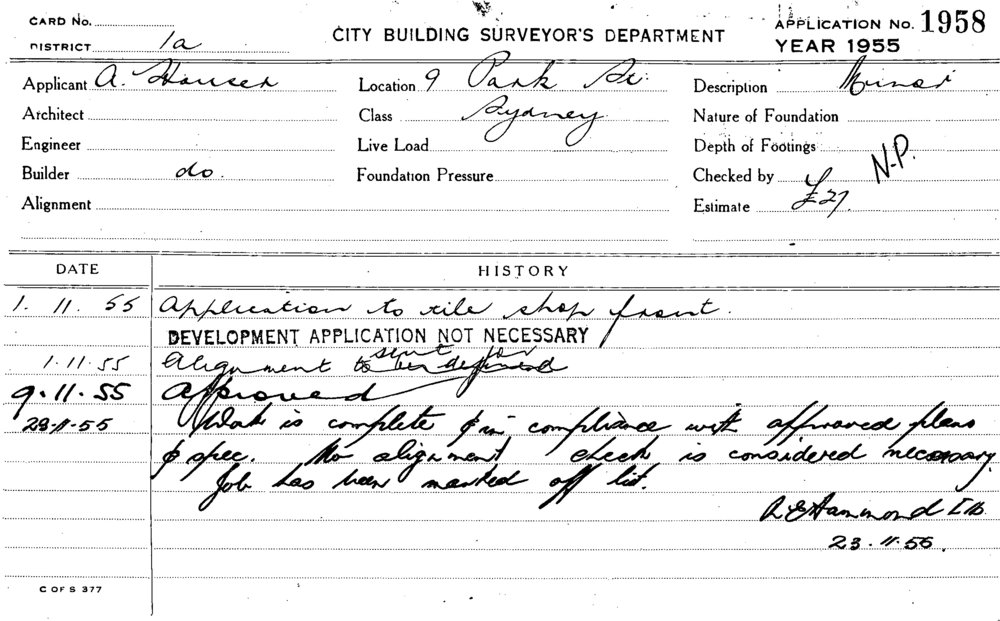 CARD No.
DISTRICT 1a
CITY BUILDING SURVEYOR'S DEPARTMENT
APPLICATION No. 1958
YEAR 1955
Applicant A. Hauser Location 9 Park St. Description Minor
Architect Class Sydney Nature of Foundation
Engineer Live Load Depth of Footings
Builder do. Foundation Pressure Checked by N.P.
Alignment Estimate £27
DATE HISTORY
1. 11. 55 Application to tile shop front.
DEVELOPMENT APPLICATION NOT NECESSARY
1.11.55 Alignment to be defined sent for
9.11.55 Approved
23.11.55 Work is complete & in compliance with approved plans
& spec. No alignment check is considered necessary.
Job has been marked off list.
A E Hammond
23.11.55.
C OF S 377